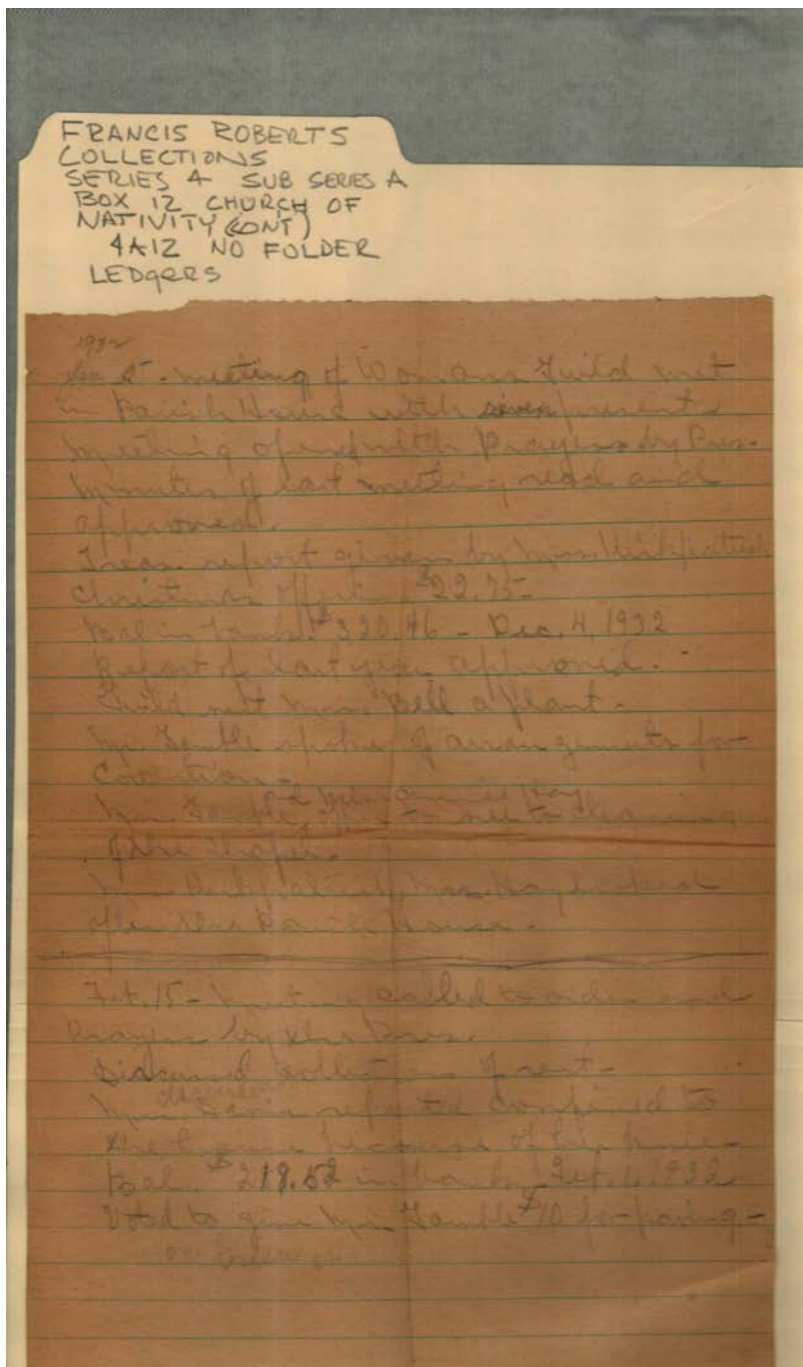 FRANCIS ROBERTS
COLLECTIONS
SERIES 4 SUB SERIES A
BOX 12 CHURCH OF
NATIVITY (CONT)
4A12 NO FOLDER
LEDgERS
1932
Jan 5. meeting of Womans Guild met
in Parish House with seven present
meeting opened with Prayers by Pres.
Minutes of last meeting read and
approved.
Treas. report given by Mrs. Kirkpatrick
Christmas $22.75
Bal in bank $320.46 - Dec. 4, 1932
Report of last year approved.
Guild sent Mrs. Bell a plant.
spoke of arrangements for
and Miss Hay
to see to cleaning
of the
Mrs. Kirkpatrick, Mrs. Hay
after the Parish House.
Feb. 15 - Meeting called to order and
Prayers by the Pres.
Discussed collections of rent
reported confined to
the because of her knee
Bal. $218.52 in bank Feb. 1, 1932
Voted to give $10 for paving -